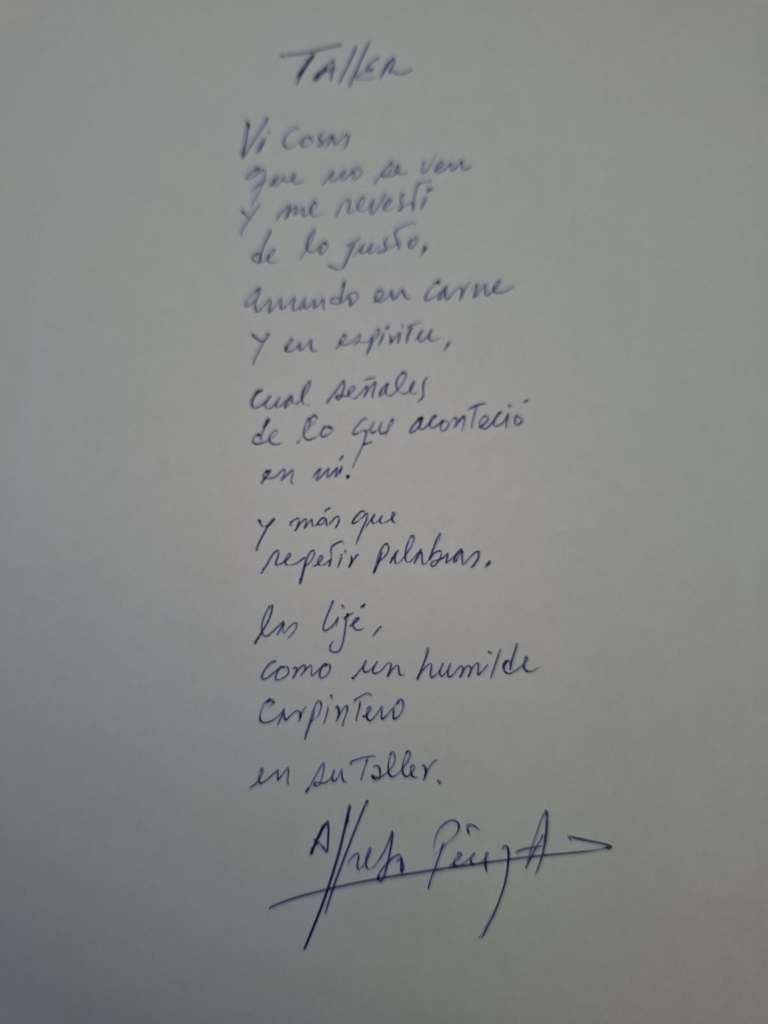 Taller
Vi cosas
que no se ven
y me revestí
de lo justo,
amando en carne
y en espíritu,
cual señales
de lo que aconteció
en mí!
y más que
repetir palabras.
las lijé,
como un humilde
carpintero
en su taller.
Alfredo Pérez A